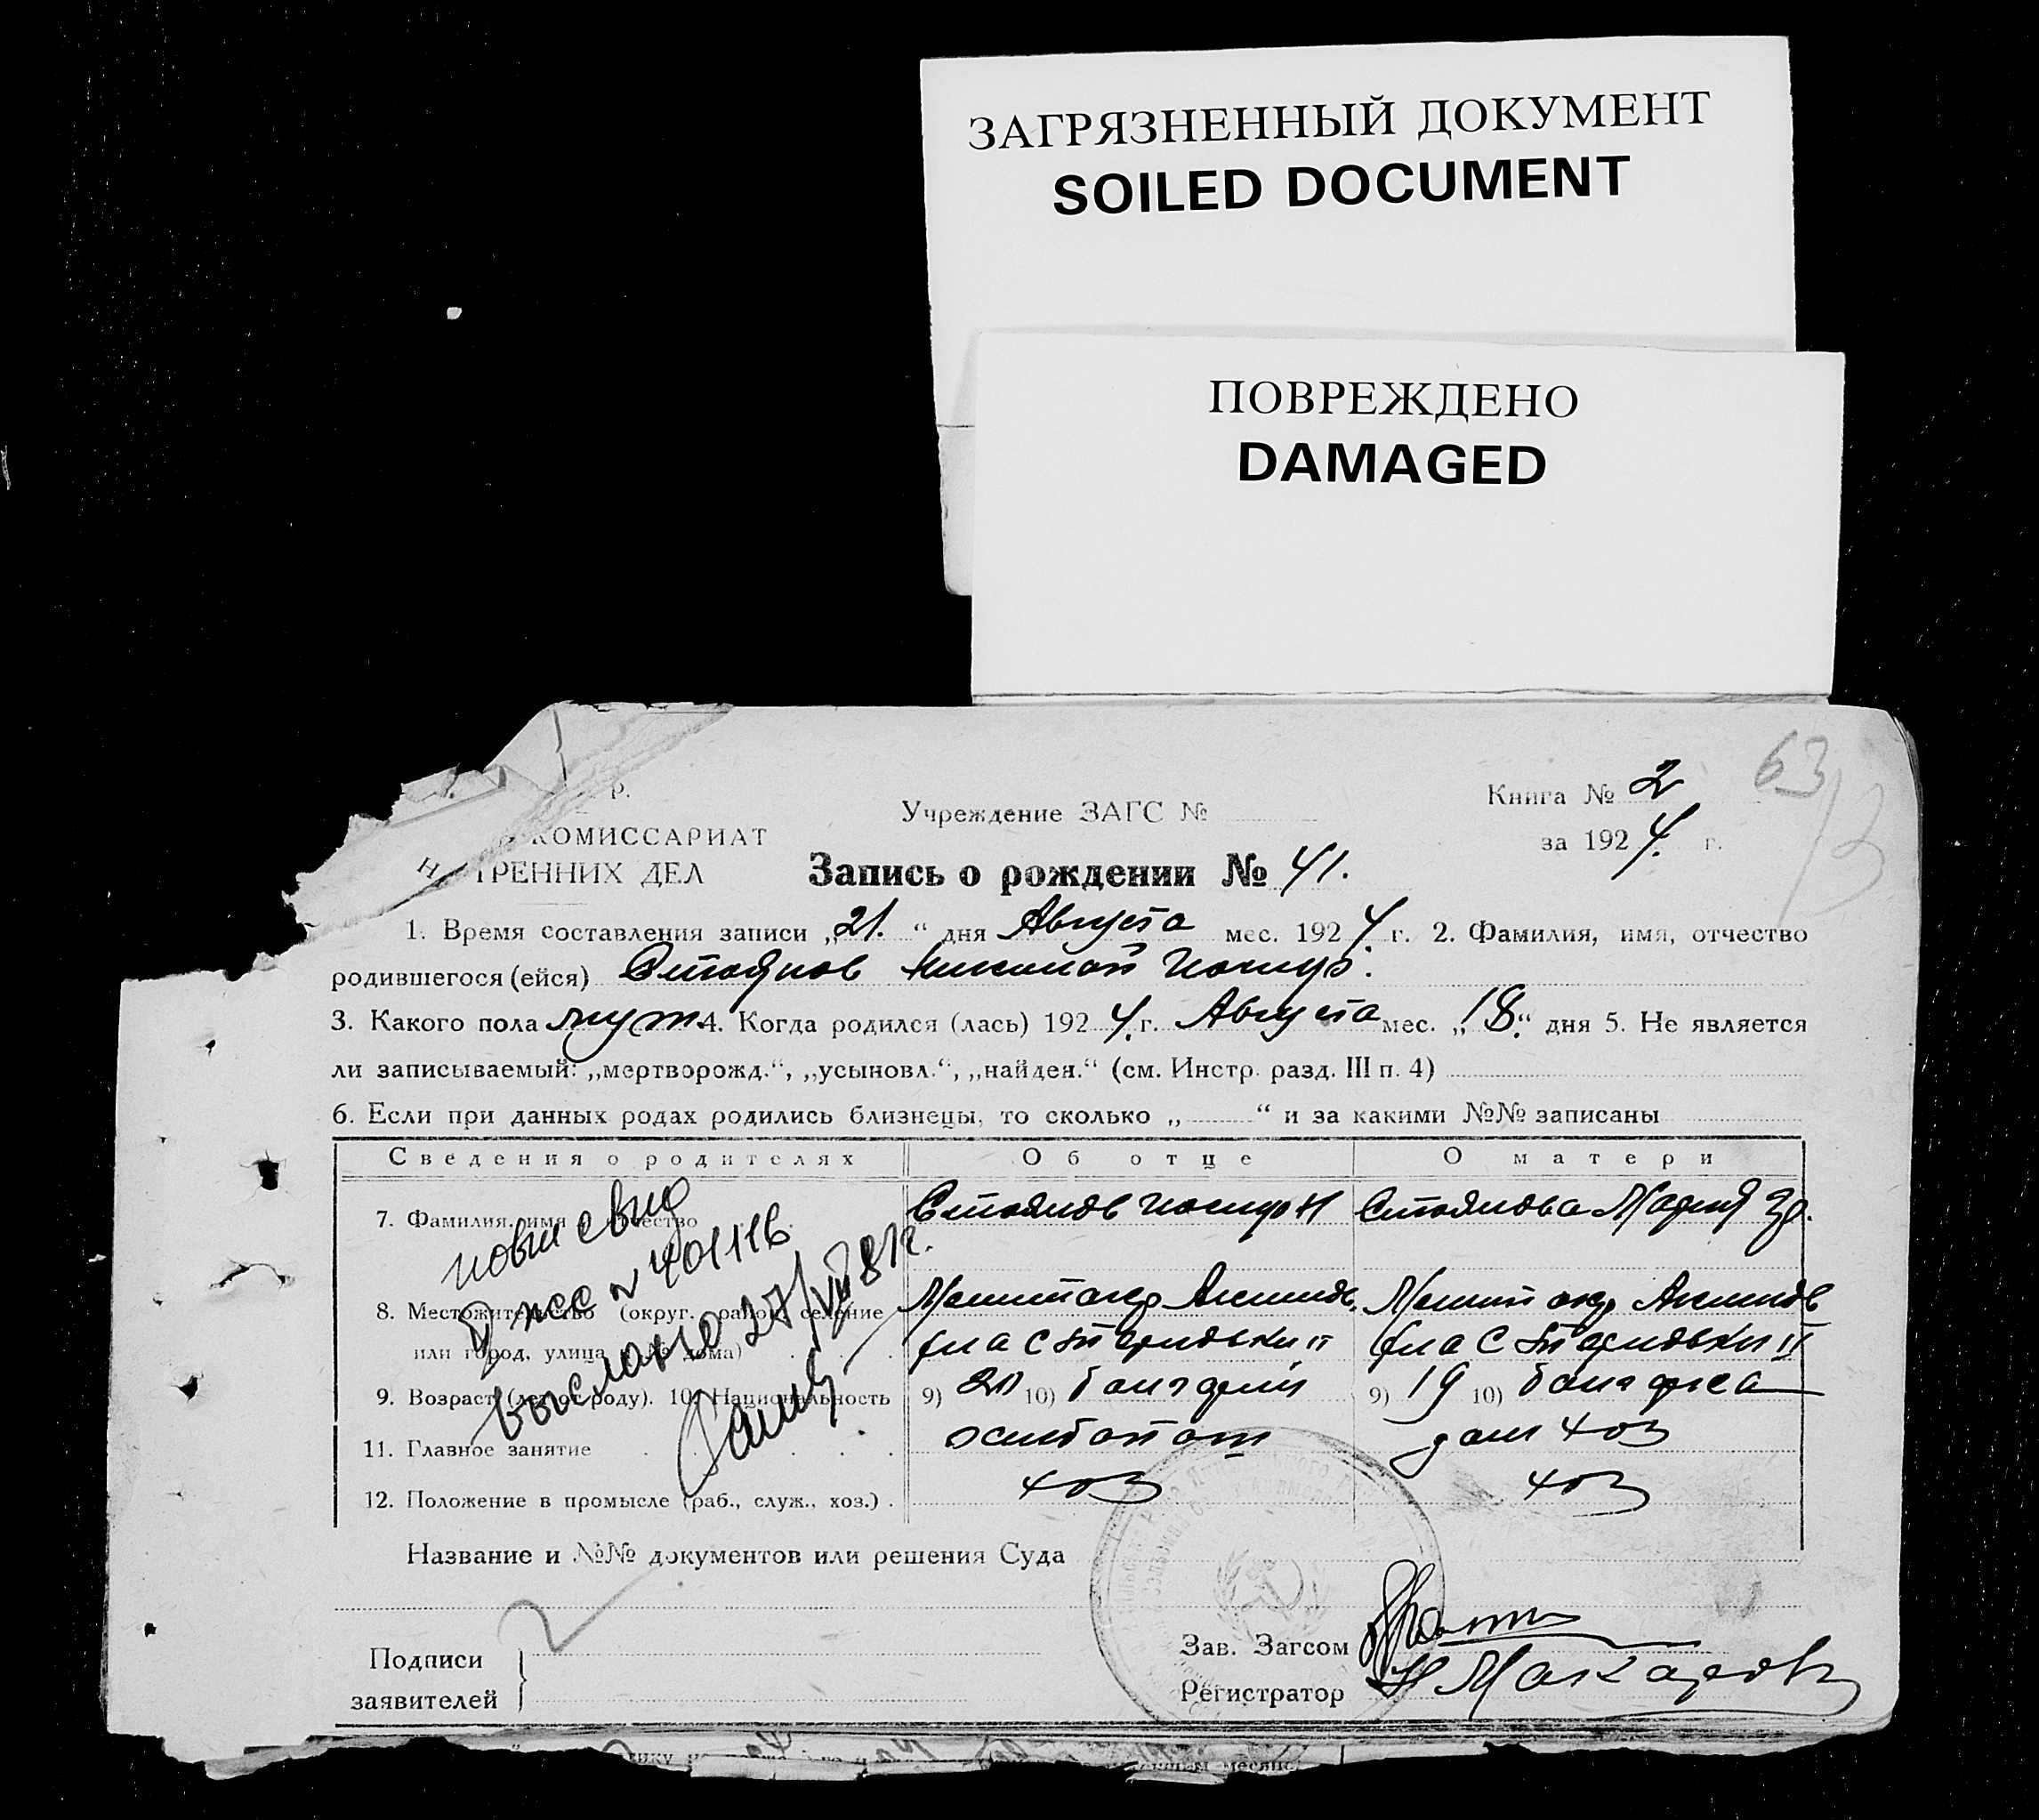 ЗАГРЯЗНЕННЫЙ ДОКУМЕНТ
SOILED DOCUMENT
ПОВРЕЖДЕНО
DAMAGED
63
Р.
Учреждение ЗАГС №
Книга № 2
КОМИССАРИАТ
за 1924 г.
ТРЕННИХ ДЕЛ
Запись о рождении № 41.
1. Время составления записи „21.“ дня Августа мес. 1924 г. 2. Фамилия, имя, отчество
родившегося (ейся) Стоянов Николай
3. Какого пола муж. 4. Когда родился (лась) 1924 г. Августа мес. „18.“ дня 5. Не является
ли записываемый: „мертворожд.“, „усыновл.“, „найден.“ (см. Инстр. разд. III п. 4)
6. Если при данных родах родились близнецы, то сколько „ “ и за какими №№ записаны
Сведения о родителях
Об отце
О матери
7. Фамилия, имя отчество
Стоянов
Стоянова Мария
повт свид
№ 401116
выслано 27/VII 81г.
8. Местожительство (округ. район селение
или город, улица дома)
Мелитокр Акимов.
Мелит окр Акимов
9. Возраст (лет от роду). 10. Национальность
9) 20 10) болгарин
9) 19 10) болгарка
11. Главное занятие
дом хоз
12. Положение в промысле (раб., служ., хоз.)
хоз
хоз
Название и №№ документов или решения Суда
Подписи
заявителей
Зав. Загсом
Регистратор Н Макаров